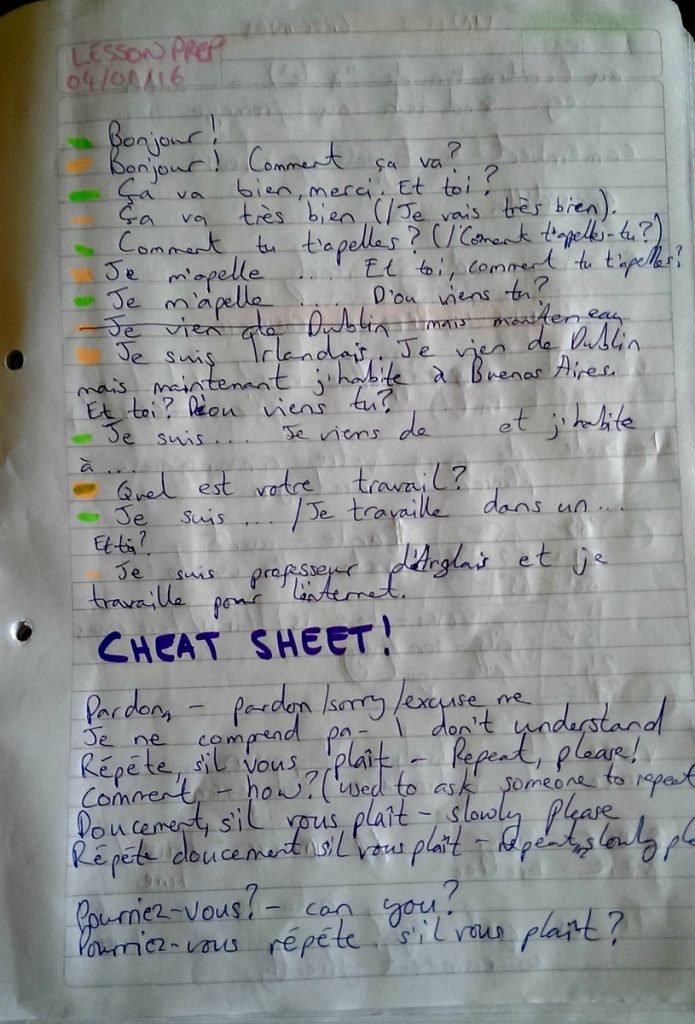 LESSON PREP
04/01/16
Bonjour!
Bonjour! Comment ça va?
Ça va bien, merci. Et toi?
Ça va très bien (/Je vais très bien).
Comment tu t'apelles? (/Coment t'apelles-tu?)
Je m'apelle .... Et toi, comment tu t'apelles?
Je m'apelle .... D'ou viens tu?
Je vien de Dublin mais
Je suis Irlandais. Je vien de Dublin
mais maintenant j'habite à Buenos Aires.
Et toi? D'ou viens tu?
Je suis... Je viens de et j'habite
à ...
Quel est votre travail?
Je suis ... /Je travaille dans un ...
Et toi?
Je suis professeur d'Anglais et je
travaille pour l'internet.
CHEAT SHEET!
Pardon, - pardon/sorry/excuse me
Je ne comprend pa - I don't understand
Répéte, s'il vous plaît - Repeat, please!
Comment - how? (used to ask someone to repeat
Doucement, s'il vous plaît - slowly please
Répéte doucement s'il vous plaît - repeat, slowly ple
Pourriez-vous? - can you?
Pourriez-vous répéte s'il vous plaît?